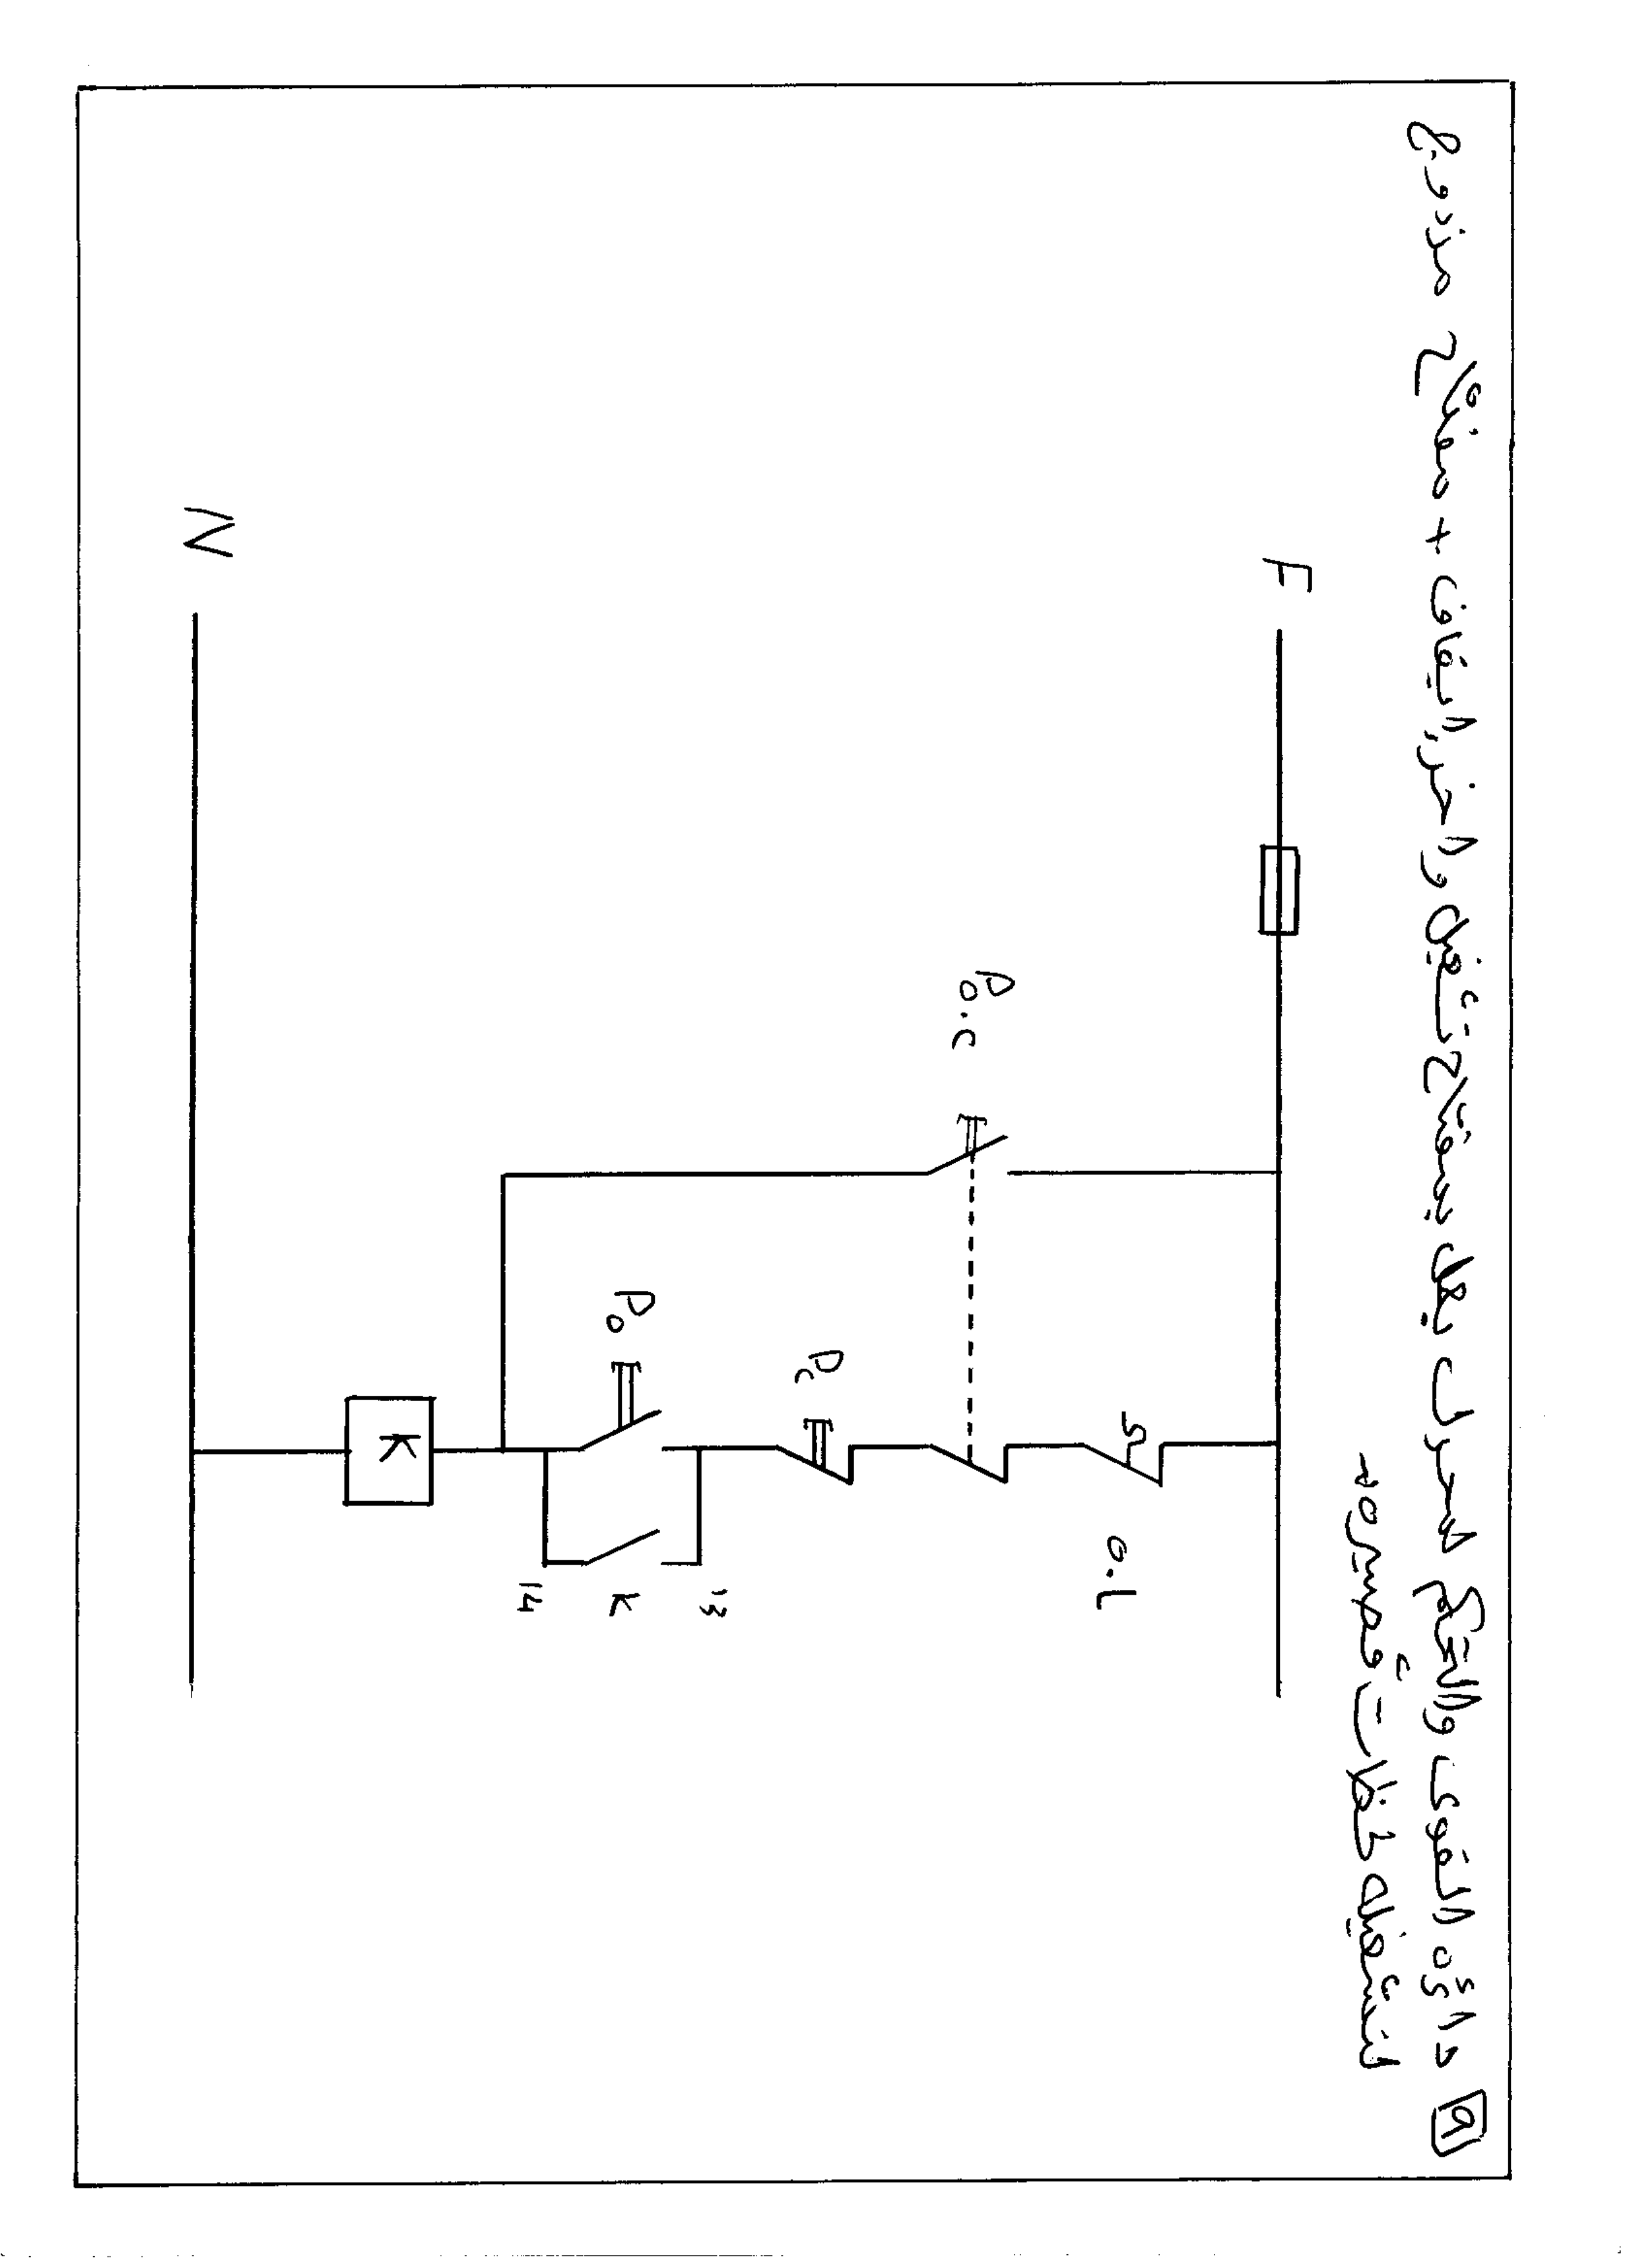 ٩ دائرة القوى والتحكم لمحرك يعمل بمفتاح تشغيل واخر إيقاف + مفتاح مزدوج
لتشغيله لحظات قصيره
F
N
Po.c
o.L
Pc
Po
13
K
14
K